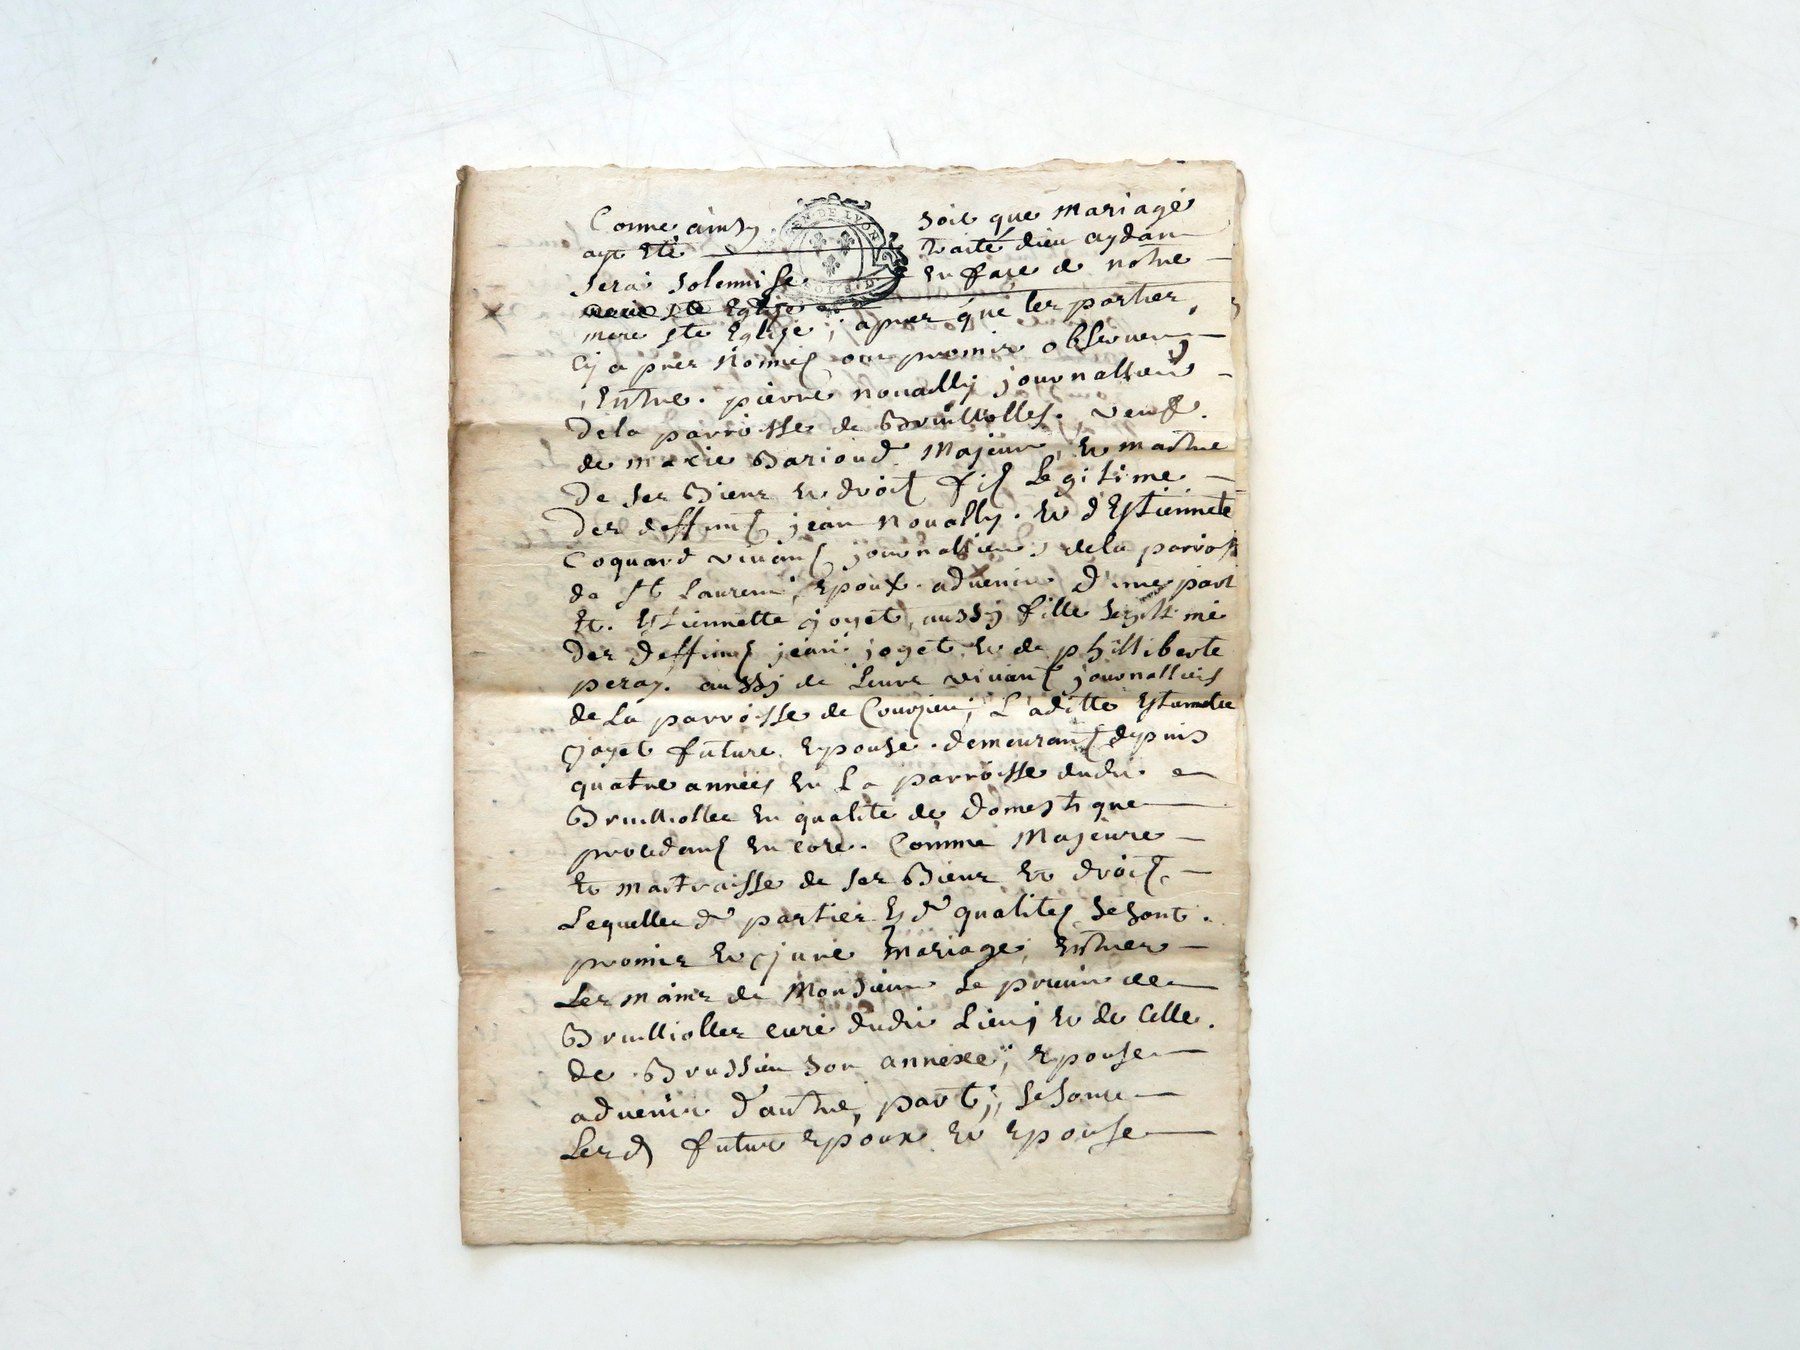 Comme ainsy soit que mariage
GEN DE LYON
ayt eté traité dieu aydan
sera solemnisse en face de notre
ste Eglise
mere ste Eglise, apres que les parties
cy apres nomméˢ ont promis observer,
Entre. pierre noually journallier
dela parroisse de Brullioles, veuf.
de marie Barioud Majeur, et maitre
de ses Biens et droiˢ fiˢ Legitime
des deffunˢ jean noually. et d'Estiennete
Coquard vivanˢ journaliers dela parrois
de st Laurent, Epoux advenir d'une part
Et. Estiennette joyet, aussy fille legitime
des deffunˢ jean joyet et de philliberte
peray. aussy de leurs vivanˢ journalliers
de La parroisse de Courzieu; Laditte Estiennette
joyet future Epouse. demeuranˢ depuis
quatre années en La parroisse dudit
Brullioles en qualité de domestique
procedanˢ encore. Comme Majeure
Et maitraisse de ses Biens et droiˢ
Lequelles d. parties Esd. qualitéˢ se sont.
promis et juré mariage, Entres
Les mains de Monsieur Le prieur de
Brullioles curé dudit Lieu, et de Celle.
de Brussieu son annexe; Epouse
advenir d'autre, part; se sont
Lesd futur Epoux et Epouse